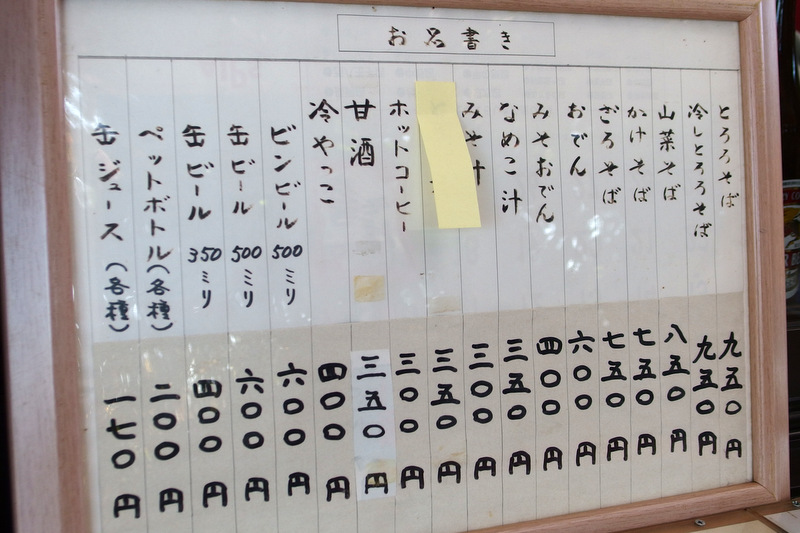 お品書き
とろろそば 九五〇円
冷しとろろそば 九五〇円
山菜そば 八五〇円
かけそば 七五〇円
ざるそば 七五〇円
おでん 六〇〇円
みそおでん 四〇〇円
なめこ汁 三五〇円
みそ汁 三〇〇円
三五〇円
ホットコーヒー 三〇〇円
甘酒 三五〇円
冷やっこ 四〇〇円
ビンビール 500ミリ 六〇〇円
缶ビール 500ミリ 六〇〇円
缶ビール 350ミリ 四〇〇円
ペットボトル(各種) 二〇〇円
缶ジュース(各種) 一七〇円